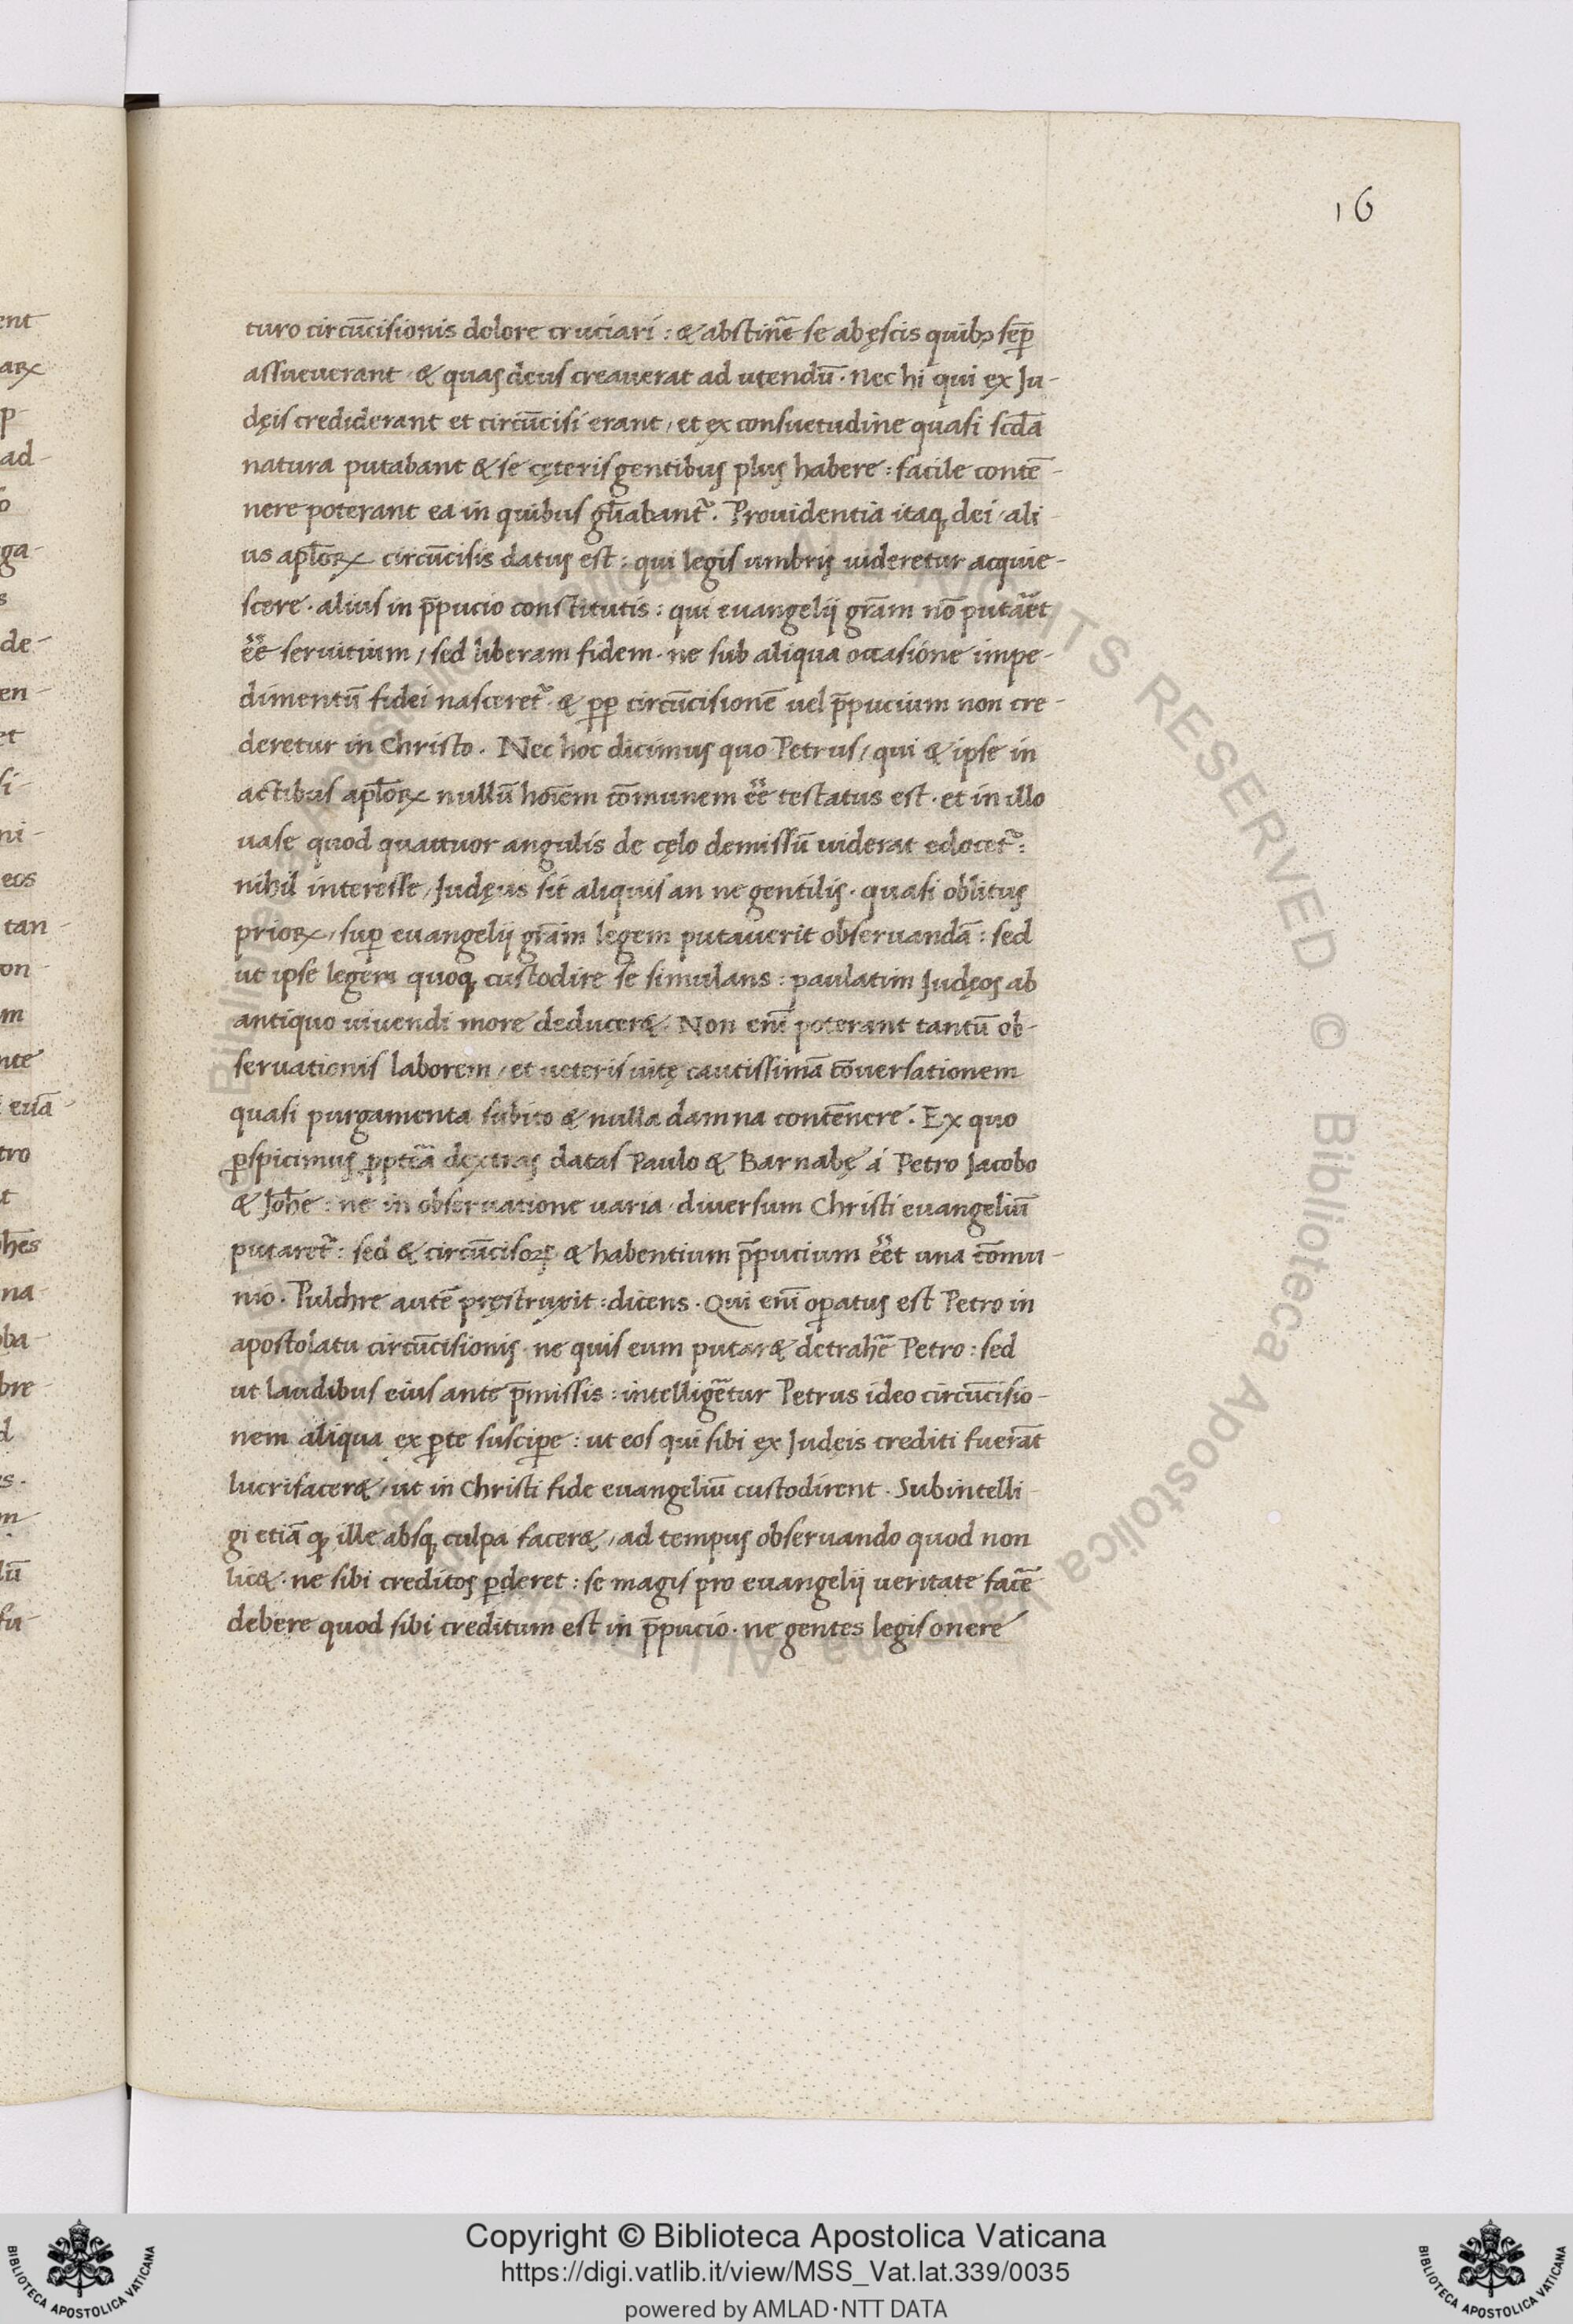 16
ent
arꝝ
p
ad-
ga-
s
de-
en-
et
si-
ni-
eos
tan-
on-
m
nte
euā-
tro
t
hēs
na-
ba-
bre-
d
s.
m
lū
fu-
turo circūcisionis dolore cruciari : & abstinẽ se ab ęscis quibꝫ sēꝑ
assueuerant & quas deus creauerat ad utendū · nec hi qui ex Ju-
dęis crediderant et circūcisi erant, et ex consuetudine quasi scd̄a
natura putabant & se cęteris gentibus plus habere : facile contē-
nere poterant ea in quibus gl̄iabant᷑. Prouidentia itaqꝫ dei ali-
us apl̄oꝝ circūcisis datus est : qui legis umbris uideretur acquie-
scere · alius in p̄pucio constitutis : qui euangelij grām nō putãet
ẽe seruitium, sed liberam fidem · ne sub aliqua occasione impe-
dimentū fidei nasceret᷑ & ꝓp circūcisionē uel p̄pucium non cre-
deretur in Christo. Nec hoc dicimus quo Petrus, qui & ipse in
actibus apl̄oꝝ nullū hoīem cōmunem ẽe testatus est · et in illo
uase quod quattuor angulis de cęlo demissū uiderat edocet᷑ :
nihil interesse, Judęus sit aliquis an ne gentilis · quasi oblitus
prioꝝ, suꝑ euangelij grām legem putauerit obseruandā : sed
ut ipse legem quoqꝫ custodire se simulans : paulatim Judęos ab
antiquo uiuendi more deducer&. Non enī poterant tantū ob-
seruationis laborem, et ueteris uitę cautissimā cōuersationem
quasi purgamenta subito & nulla damna contēnere. Ex quo
ꝑspicimus ꝓptẽa dextras datas Paulo & Barnabę á Petro Jacobo
& Joh̄e : ne in obseruatione uaria diuersum Christi euangeliū
putaret᷑ : sed & circūcisoꝝ & habentium p̄pucium ẽet una cōmu-
nio. Pulchre autē pręstruxit : dicens. Qui enī oꝑatus est Petro in
apostolatu circūcisionis · ne quis eum putar& detrahẽ Petro : sed
ut laudibus eius ante p̄missis : intelligẽtur Petrus ideo circūcisio-
nem aliqua ex ꝑte susciꝑe : ut eos qui sibi ex Judęis crediti fuerāt
lucrifacer&, ut in Christi fide euangeliū custodirent. Subintelli-
gi etiā ꝙ ille absqꝫ culpa facer&, ad tempus obseruando quod non
lic& · ne sibi creditos ꝑderet : se magis pro euangelij ueritate facẽ
debere quod sibi creditum est in p̄pucio · ne gentes legis onere
Biblioteca Apostolica Vaticana ALL RIGHTS RESERVED © Biblioteca Apostolica Vaticana ALL RIGHTS RESERVED ©
Copyright © Biblioteca Apostolica Vaticana
https://digi.vatlib.it/view/MSS_Vat.lat.339/0035
powered by AMLAD·NTT DATA
BIBLIOTECA APOSTOLICA VATICANA
BIBLIOTECA APOSTOLICA VATICANA